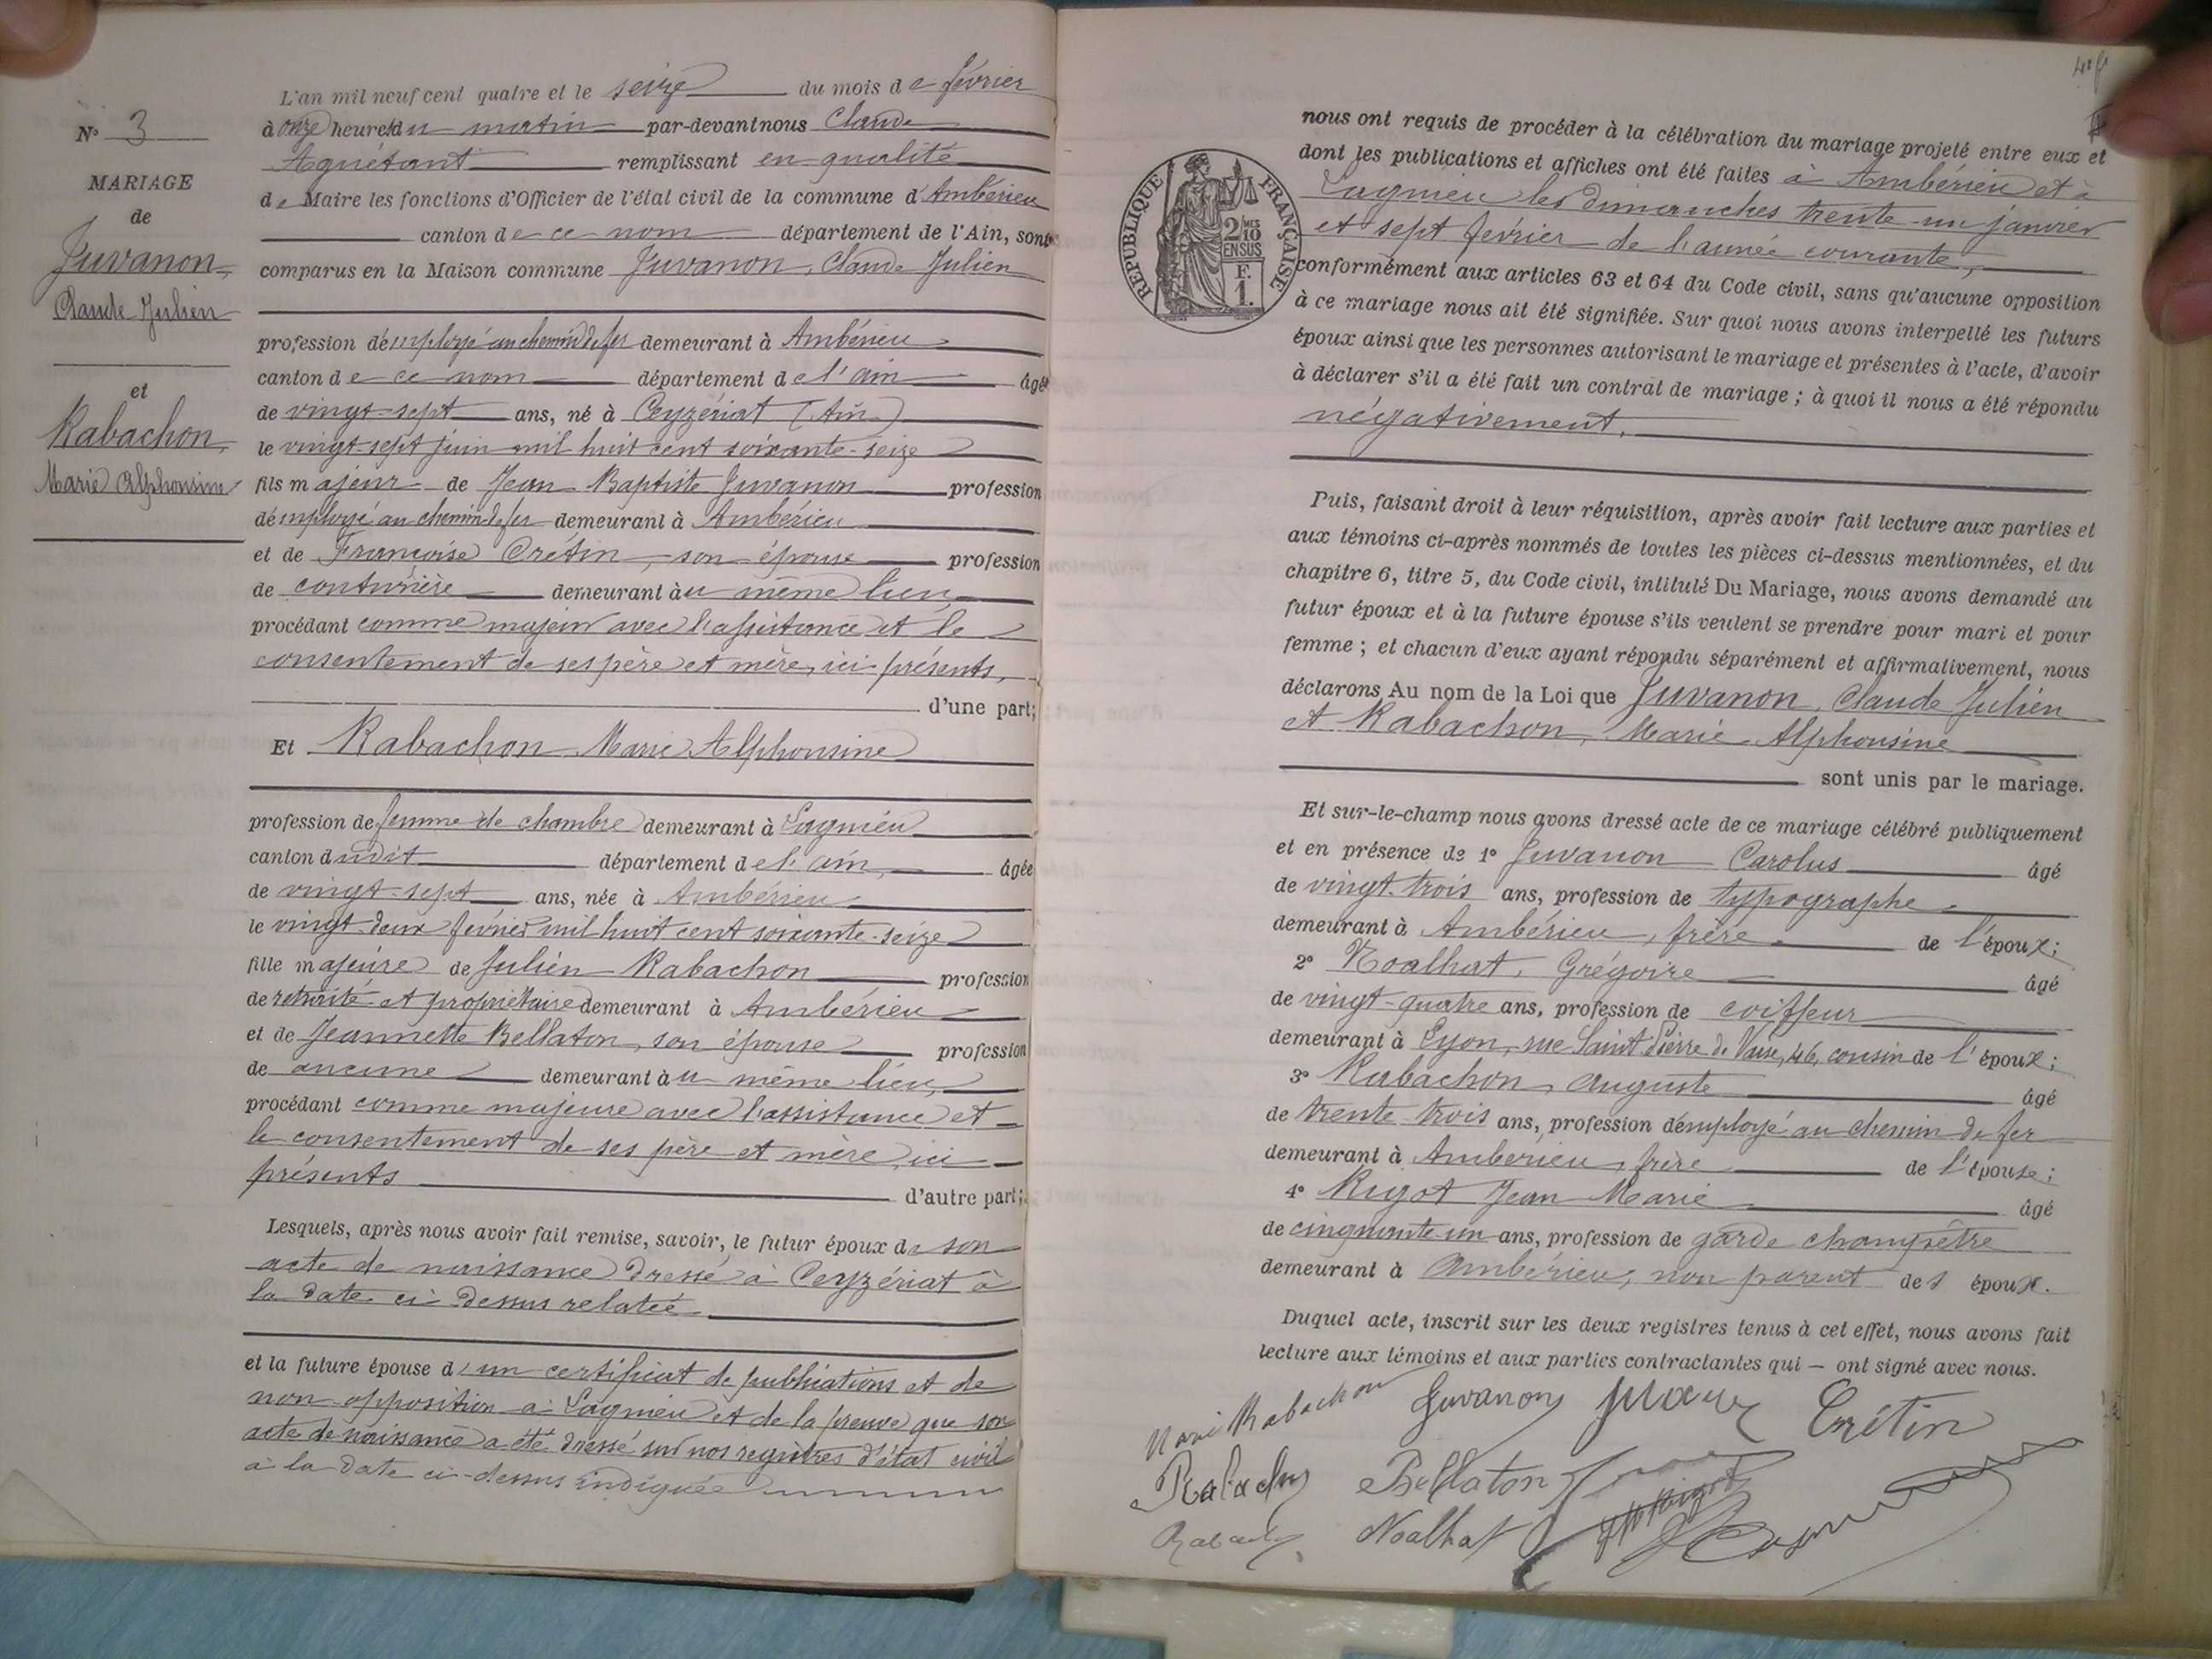 N° 3
MARIAGE
de
Juvanon,
Claude Julien
et
Rabachon,
Marie Alphonsine
L'an mil neuf cent quatre et le seize du mois de février
à onze heures du matin par-devant nous Claude
Aguétant remplissant en qualité
de Maire les fonctions d'Officier de l'état civil de la commune d'Ambérieu
canton de ce nom département de l'Ain, sont
comparus en la Maison commune Juvanon, Claude Julien
profession d'employé au chemin de fer demeurant à Ambérieu
canton de ce nom département de l'ain âgé
de vingt-sept ans, né à Ceyzériat (Ain)
le vingt-sept juin mil huit cent soixante-seize
fils majeur de Jean Baptiste Juvanon profession
d'employé au chemin de fer demeurant à Ambérieu
et de Françoise Crétin, son épouse profession
de couturière demeurant au même lieu,
procédant comme majeur avec l'assistance et le
consentement de ses père et mère, ici présents,
d'une part;
Et Rabachon Marie Alphonsine
profession de femme de chambre demeurant à Lagnieu
canton dudit département de l'ain, âgée
de vingt-sept ans, née à Ambérieu
le vingt-deux février mil huit cent soixante-seize
fille majeure de Julien Rabachon profession
de retraité et propriétaire demeurant à Ambérieu
et de Jeannette Bellaton, son épouse profession
de aucune demeurant au même lieu,
procédant comme majeure avec l'assistance et
le consentement de ses père et mère, ici
présents d'autre part;
Lesquels, après nous avoir fait remise, savoir, le futur époux de son
acte de naissance dressé à Ceyzériat à
la date ci-dessus relatée
et la future épouse d'un certificat de publications et de
non-opposition à Lagnieu et de la preuve que son
acte de naissance a été dressé sur nos registres d'état civil
à la date ci-dessus indiquée
RÉPUBLIQUE FRANÇAISE
2/10MES
EN SUS
F.
1.
nous ont requis de procéder à la célébration du mariage projeté entre eux et
dont les publications et affiches ont été faites à Ambérieu et à
Lagnieu les dimanches trente-un janvier
et sept février de l'année courante,
conformément aux articles 63 et 64 du Code civil, sans qu'aucune opposition
à ce mariage nous ait été signifiée. Sur quoi nous avons interpellé les futurs
époux ainsi que les personnes autorisant le mariage et présentes à l'acte, d'avoir
à déclarer s'il a été fait un contrat de mariage ; à quoi il nous a été répondu
négativement.
Puis, faisant droit à leur réquisition, après avoir fait lecture aux parties et
aux témoins ci-après nommés de toutes les pièces ci-dessus mentionnées, et du
chapitre 6, titre 5, du Code civil, intitulé Du Mariage, nous avons demandé au
futur époux et à la future épouse s'ils veulent se prendre pour mari et pour
femme ; et chacun d'eux ayant répondu séparément et affirmativement, nous
déclarons Au nom de la Loi que Juvanon, Claude Julien
et Rabachon, Marie Alphonsine
sont unis par le mariage.
Et sur-le-champ nous avons dressé acte de ce mariage célébré publiquement
et en présence de 1° Juvanon Carolus âgé
de vingt-trois ans, profession de typographe
demeurant à Ambérieu, frère de l'époux;
2° Noalhat, Grégoire âgé
de vingt-quatre ans, profession de coiffeur
demeurant à Lyon, rue Saint Pierre de Vaise, 46, cousin de l'époux;
3° Rabachon, Auguste âgé
de trente-trois ans, profession d'employé au chemin de fer
demeurant à Amberieu, frère de l'épouse;
4° Rigot Jean Marie âgé
de cinquante-un ans, profession de garde champêtre
demeurant à Ambérieu, non parent des époux.
Duquel acte, inscrit sur les deux registres tenus à cet effet, nous avons fait
lecture aux témoins et aux parties contractantes qui – ont signé avec nous.
Marie Rabachon Juvanon Crétin
Rabachon Bellaton
Noalhat Rigot